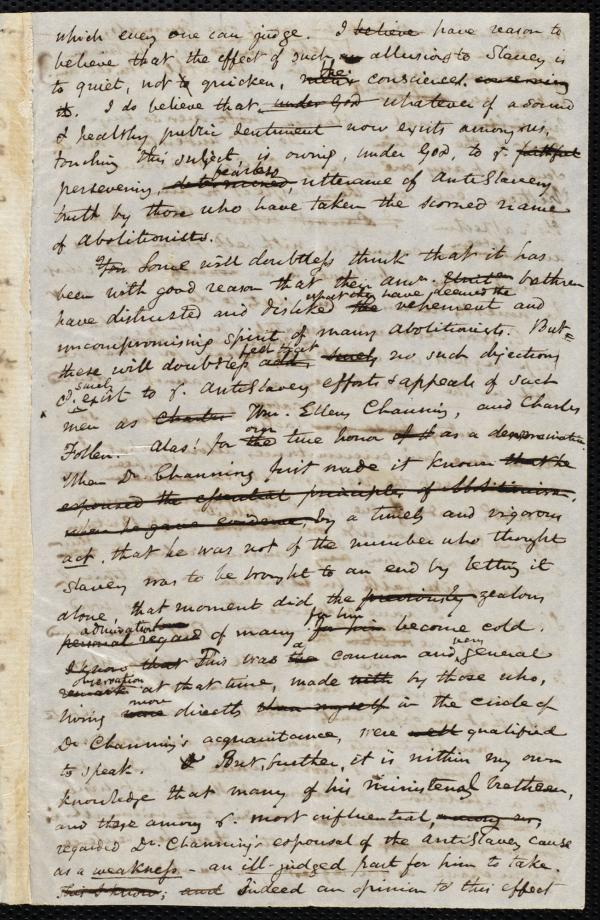 which every one can judge. I believe have reason to
believe that the effect of such allusions to Slavery is
to quiet, not to quicken, the consciences. concerning
it. I do believe that, under God whatever of a sound
& healthy public sentiment now exists among us,
touching this subject, is owing, under God, to ye. faithful
persevering, fearless determined, utterance of AntiSlavery
truth by those who have taken the scorned name
of abolitionists.
Some will doubtless think that it has
been with good reason that their brethren
have distrusted and disliked what they have deemed the the vehement and
uncompromising spirit of many abolitionists. But
these will doubtless feel that surely no such objections
cd. surely exist to ye. AntiSlavery efforts & appeals of such
men as Charles Wm. Ellery Channing, and Charles
Follen. Alas! for our the true honor of as a denomination
When Dr. Channing first made it known that he
espoused the essential principles of Abolitionism,
when he gave evidence, by a timely and vigorous
act, that he was not of the number who thought
Slavery was to be brought to an end by letting it
alone, that moment did the previously zealous
admiration personal regard of many for him for him become cold.
I know that This was a the common and very general
observation remark at that time, made with by those who,
living more were directly than myself in the circle of
Dr Channing's acquaintance, were well qualified
to speak. But, further, it is within my own
knowledge that many of his ministerial brethren,
and those among ye. most influential, among us,
regarded Dr. Channing's espousal of the antiSlavery cause
as a weakness - an ill-judged part for him to take.
This I know; and Indeed an opinion to this effect